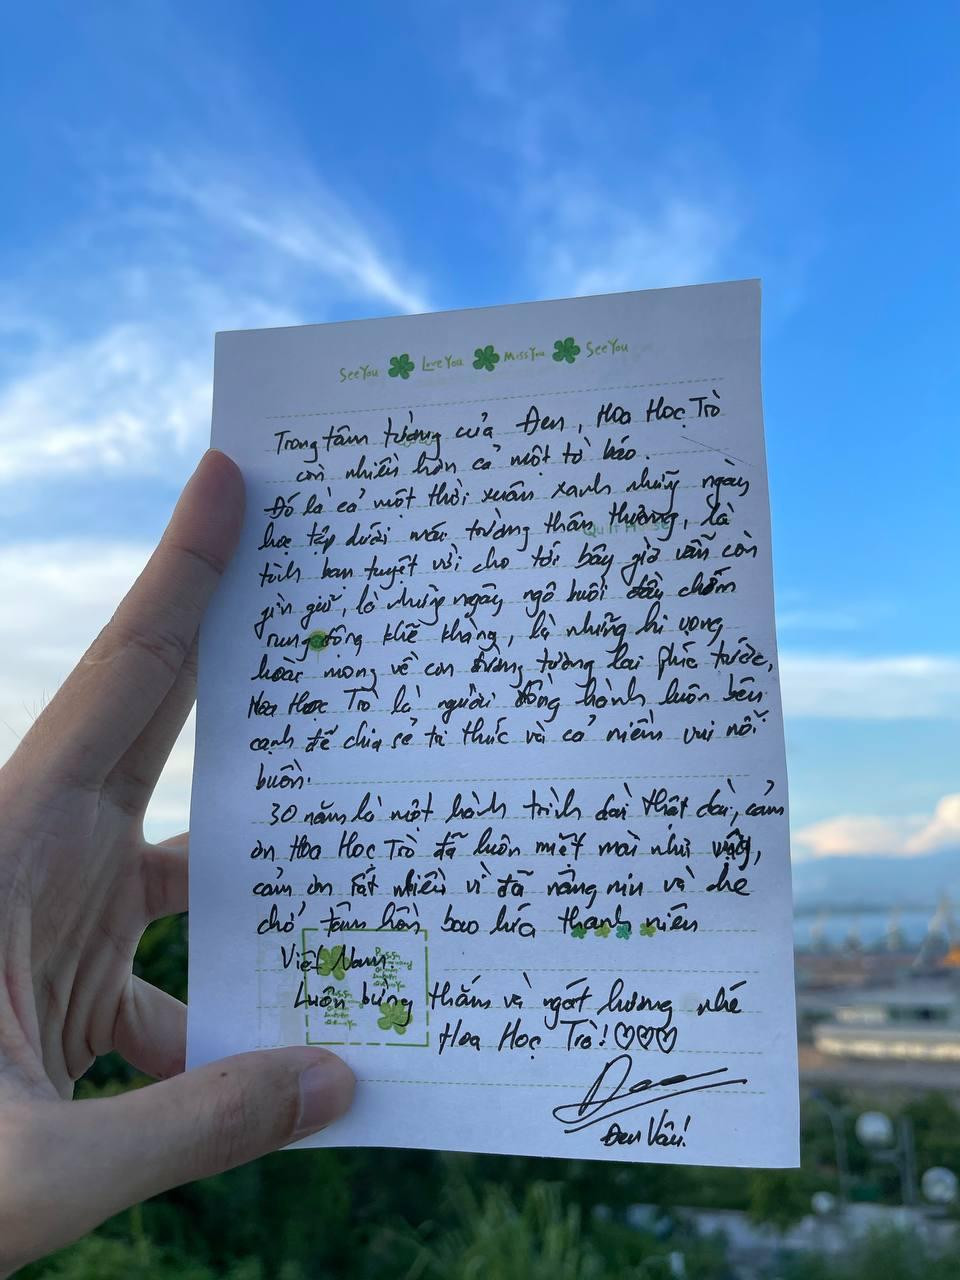 See You Love You Miss You See You
Trong tâm tưởng của Đen, Hoa Học Trò
còn nhiều hơn cả một tờ báo.
Đó là cả một thời xuân xanh những ngày
học tập dưới mái trường thân thương, là
tình bạn tuyệt vời cho tới bây giờ vẫn còn
gìn giữ, là những ngây ngô buổi đầu chớm
rung động khẽ khàng, là những hi vọng
hoài mong về con đường tương lai phía trước,
Hoa Học Trò là người đồng hành luôn bên
cạnh để chia sẻ tri thức và cả niềm vui nỗi
buồn.
30 năm là một hành trình dài thật dài, cảm
ơn Hoa Học Trò đã luôn miệt mài như vậy,
cảm ơn rất nhiều vì đã nâng niu và che
chở tâm hồn bao lứa thanh niên
Việt Nam.
Luôn bừng thắm và ngát hương nhé
Hoa Học Trò!
Đen Vâu!